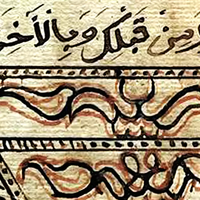 مِنْ قَبْلِكَ وَبِالْأَخِ